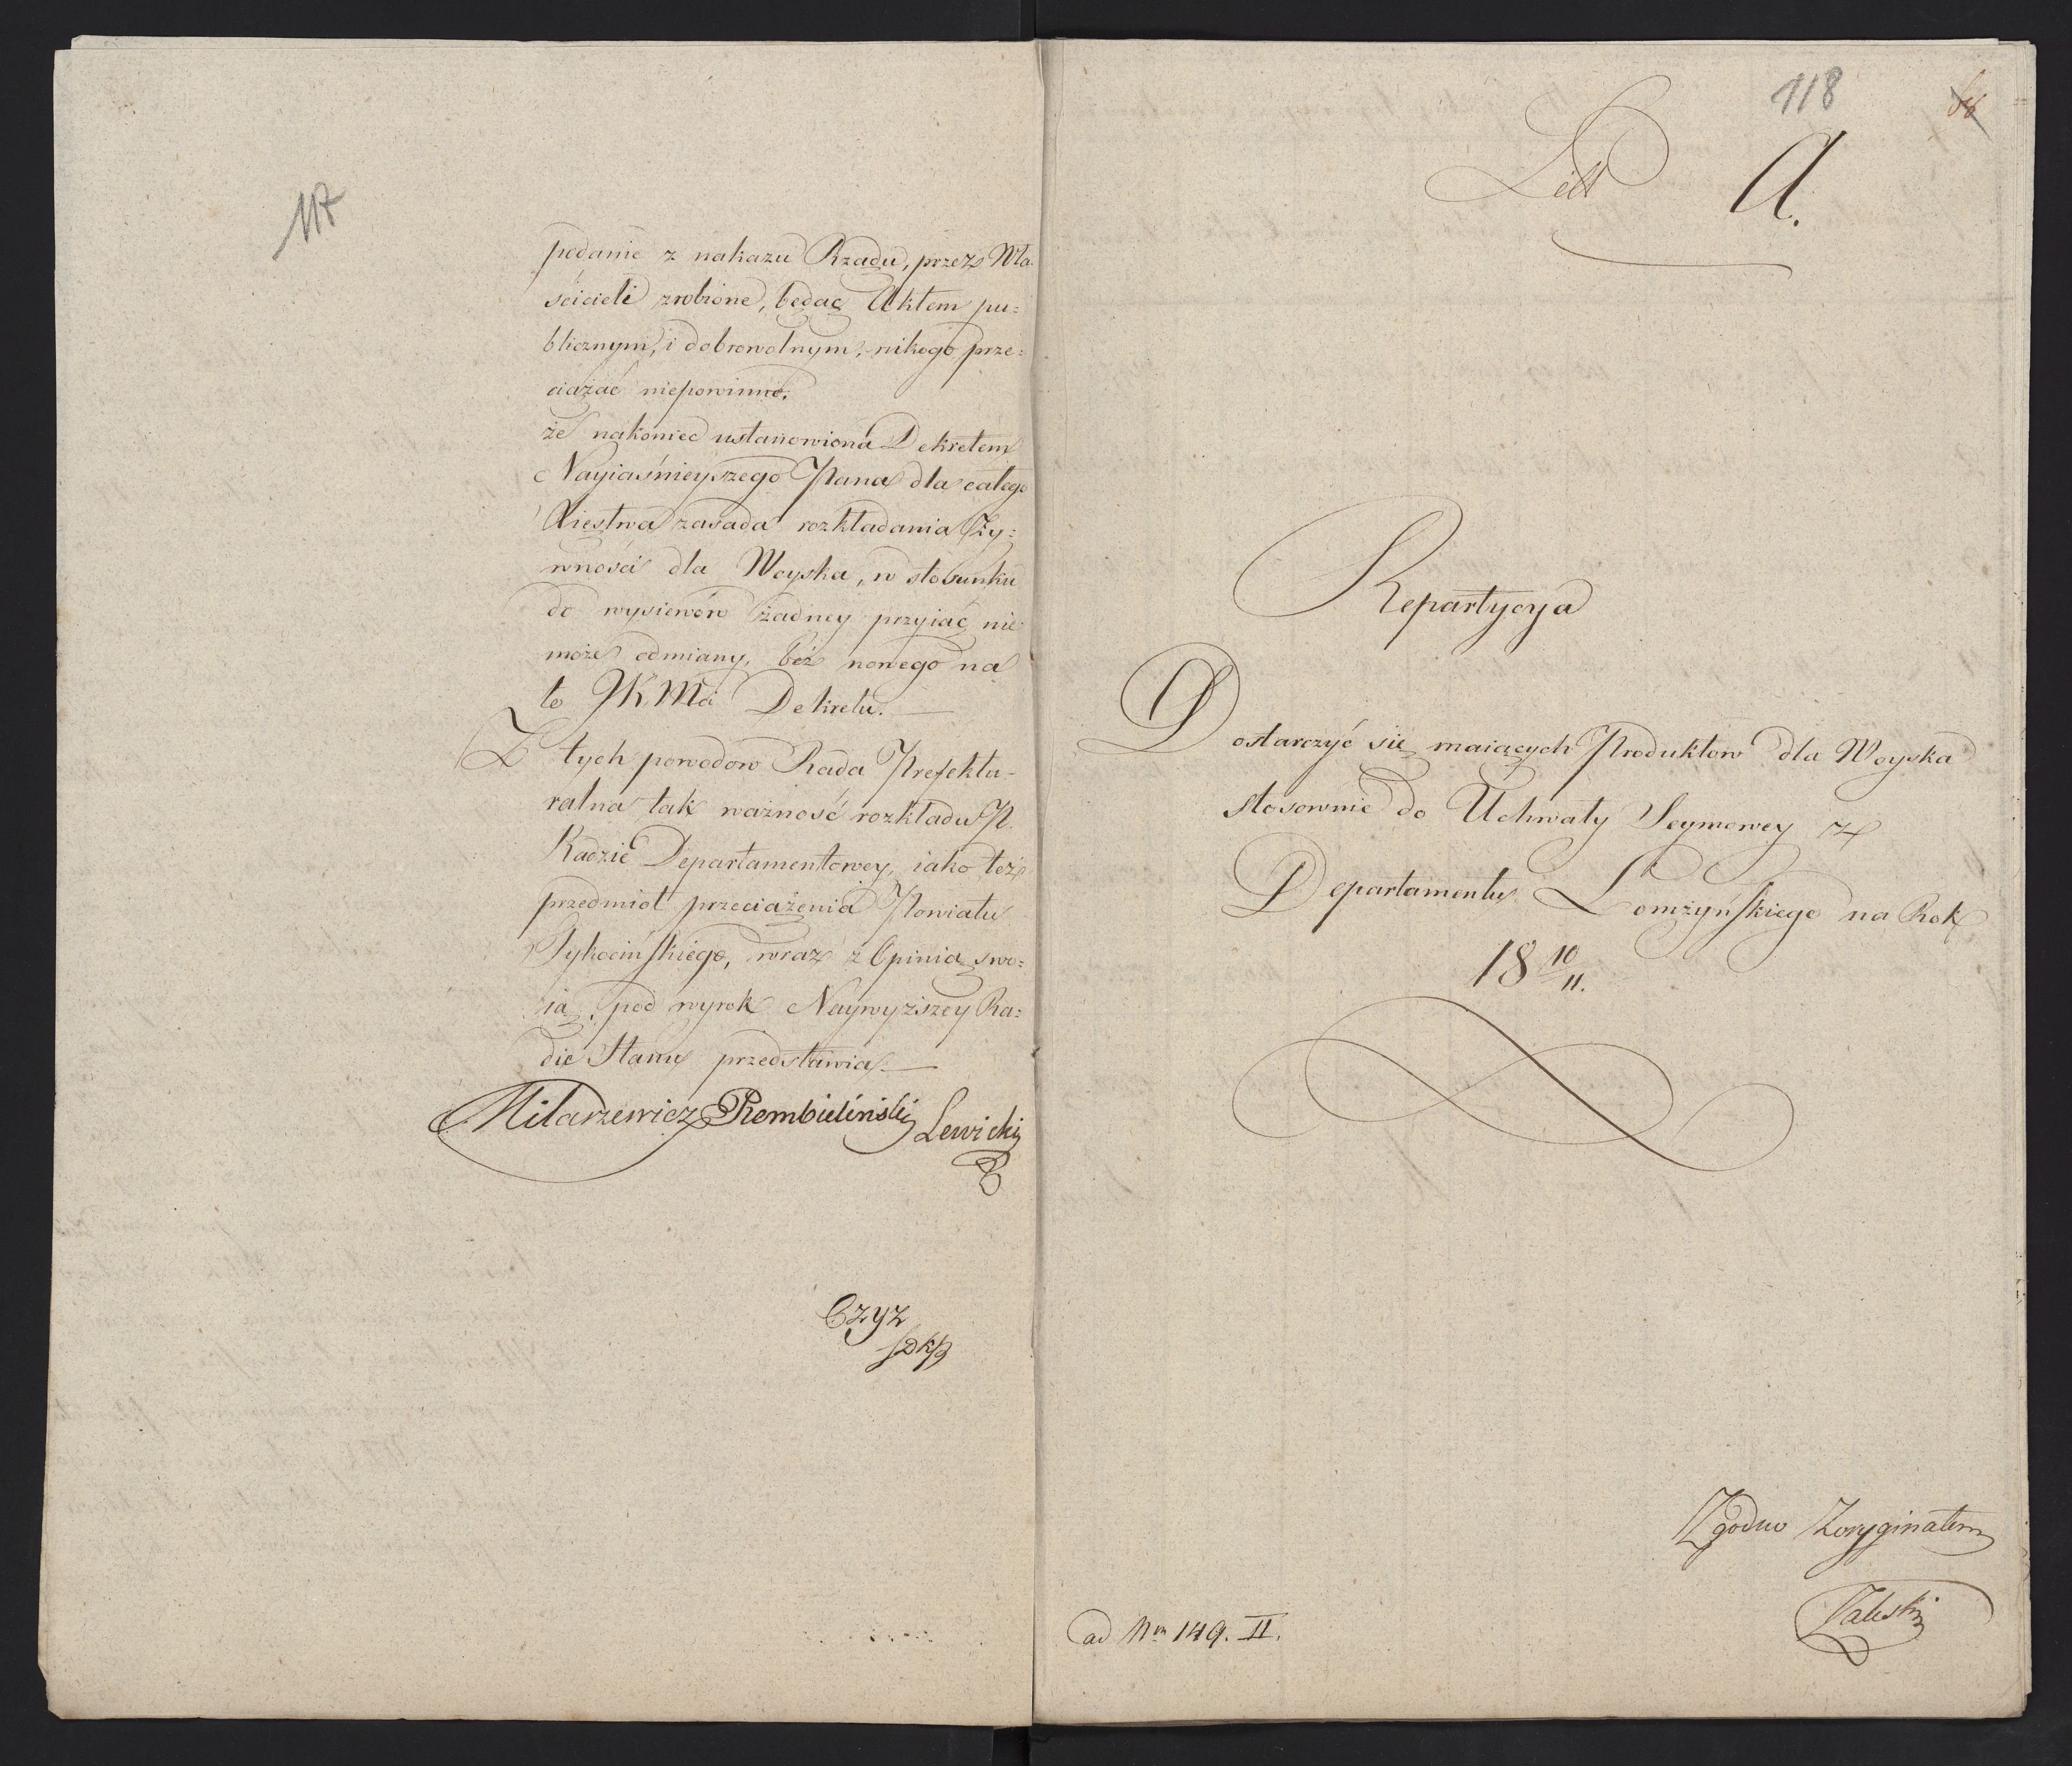 117
podanie z nakazu Rządu, przez Wła-
ścicieli zrobione, będąc Aktem pu=
blicznym, i dobrowolnym, nikogo prze=
ciążać niepowinno,
że nakoniec ustanowiona Dekretem
Nayiaśnieyszego Pana dla całego
Xięstwa zasada rozkładania Ży=
wności dla Woyska, w stosunku
do wysiewów żadney przyiąć nie
może odmiany, bez nowego na
to JKMci Dekretu. —
Z tych powodow Rada Prefektu-
ralna tak ważność rozkładu P.
Radzie Departamentowey, iako też
przedmiot przeciążenia Powiatu
Tykocińskiego, wraz z Opinią swo=
ią, pod wyrok Naywyższey Ra=
die Stanu przedstawia. —
Milarzewicz Rembieliński Lewicki
Czyz
118
Litt A.
Repartycya
Dostarczyć się maiących Produktow dla Woyska
stosownie do Uchwały Seymowey z
Departamentu Łomżyńskiego na Rok
18 10/11.
Zgodno Zoryginałem
Zaleski
ad Nrm 149. II.